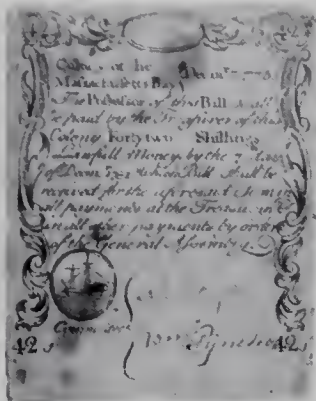 42 42
Colony of the
Massachusetts Bay Decemr
The Possessor of this Bill shall
be paid by the Treasurer of this
Colony Forty two Shillings
Lawfull Money by the 7 day
of Decemr which Bill shall be
received for the aforesaid Sum in
all payments at the Treasury and
in all other payments by order
of the General Assembly
Pynchon
42s 42s